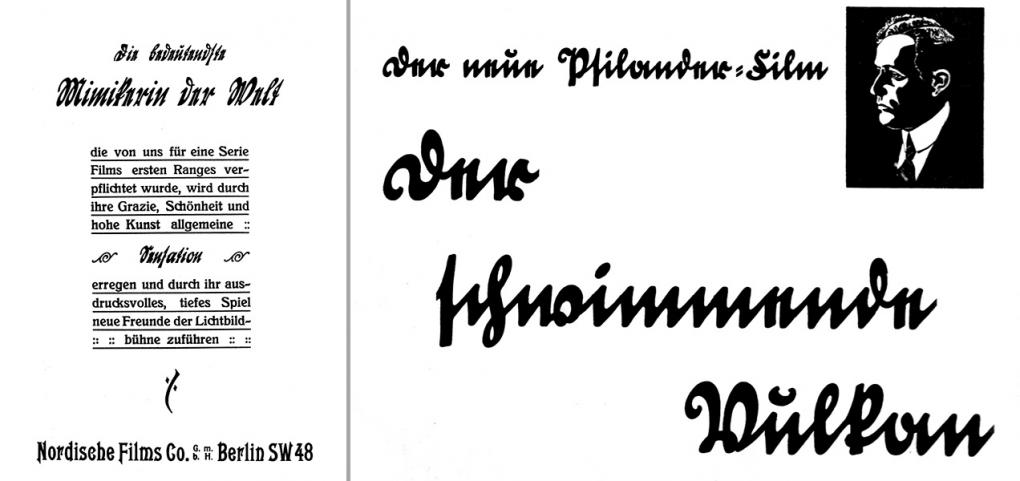 Die bedeutendste
Mimikerin der Welt
die von uns für eine Serie
Films ersten Ranges ver-
pflichtet wurde, wird durch
ihre Grazie, Schönheit und
hohe Kunst allgemeine ::
Sensation
erregen und durch ihr aus-
drucksvolles, tiefes Spiel
neue Freunde der Lichtbild-
:: :: bühne zuführen :: ::
Nordische Films Co. G. m. b. H. Berlin SW 48
Der neue Psilander-Film
Der
schwimmende
Vulkan